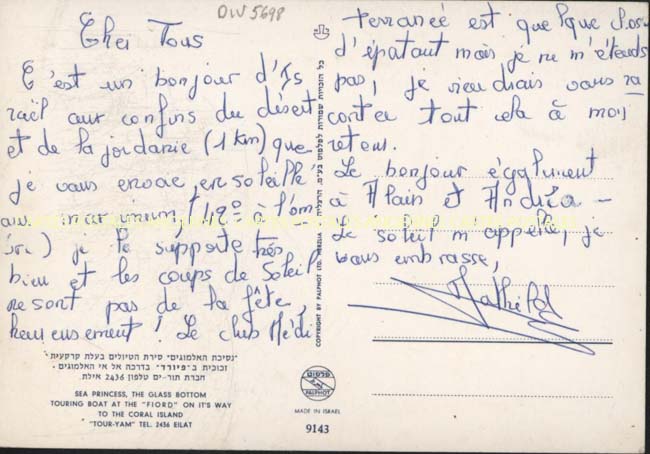 DW5698
Cher Tous
C'est un bonjour d'Is
raël aux confins du désert
et de la jordanie (1 km) que
je vous envoie, ensoleillé
au maximum, (42° à l'om
bre) je le supporte très
bien et les coups de Soleil
ne sont pas de la fête,
heureusement! Le club Médi
terranée est quelque chose
d'épatant mais je ne m'étends
pas, je viendrais vous ra
conter tout cela à mon
retour.
Le bonjour également
à Alain et Andréa -
Le soleil m'appelle, je
vous embrasse,
Mathilde
כל הזכויות שמורות לפלפוט בע"מ. הרצליה
COPYRIGHT BY PALPHOT LTD.
"נסיכת האלמוגים" סירת הטיולים בעלת קרקעית
זכוכית ב"פיורד" בדרכה אל אי האלמוגים
חברת תור-ים טלפון 2436 אילת.
SEA PRINCESS, THE GLASS BOTTOM
TOURING BOAT AT THE "FIORD" ON IT'S WAY
TO THE CORAL ISLAND
"TOUR-YAM" TEL. 2436 EILAT
פלפוט
PALPHOT
MADE IN ISRAEL
9143